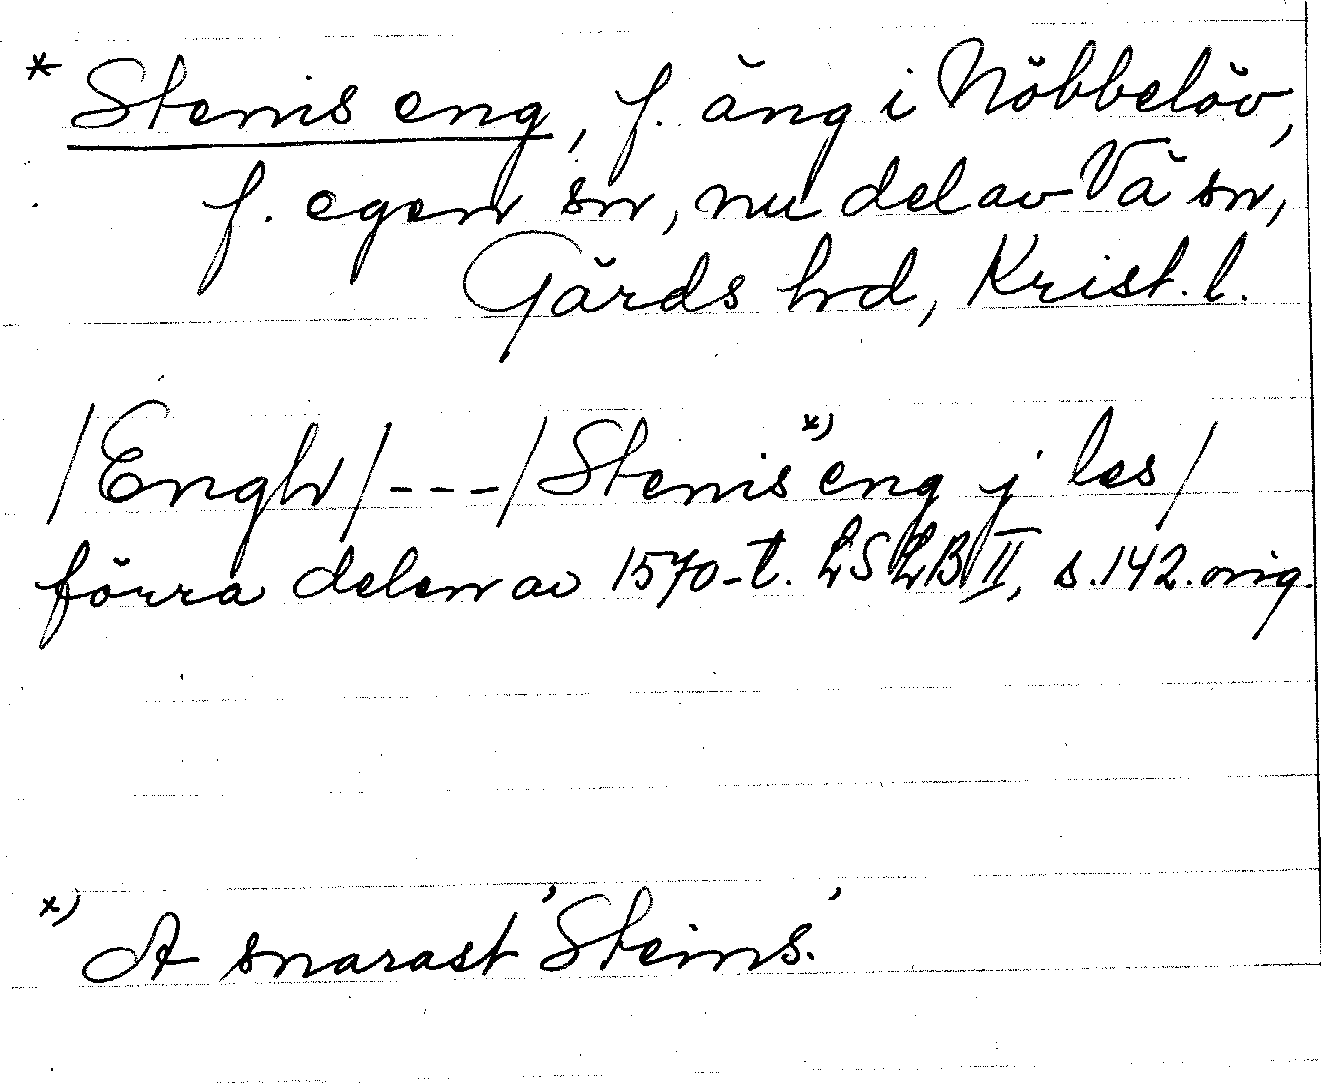 * Stenis eng, f. äng i Nöbbelöv,
f. egen sn, nu del av Vä sn,
Gärds hd, Krist. l.
/Engh/---/Stenis x) eng j les/
förra delen av 1570-t. LSLB II, s. 142. orig.
x) A snarast 'Steins.'